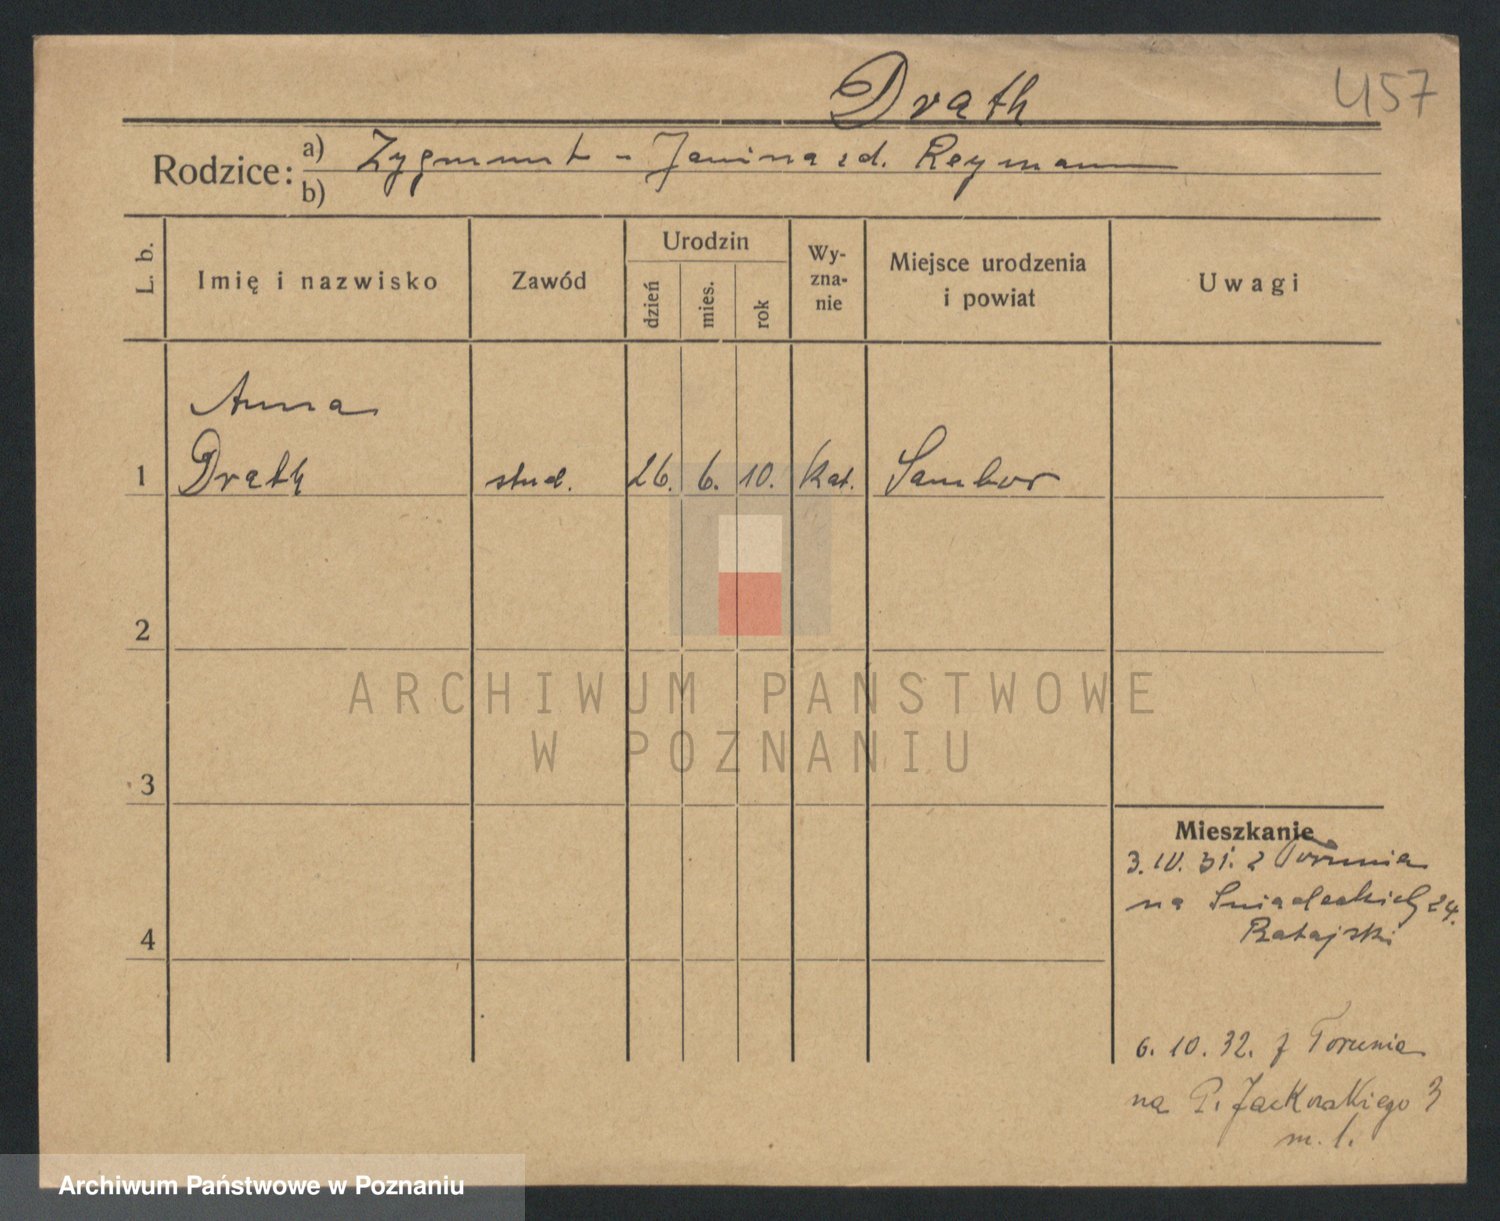 Drath
457
Rodzice: a) Zygmunt - Janina zd. Reymann
b)
L. b.
Imię i nazwisko
Zawód
Urodzin
dzień
mies.
rok
Wy-
zna-
nie
Miejsce urodzenia
i powiat
Uwagi
Anna
1 Drath stud. 26. 6. 10. kat. Sambor
2
3
4
Mieszkanie
3. IV. 31. z Torunia
na Śniadeckich 24.
Ratajski
6. 10. 32. z Torunia
na P. Jackowskiego 3
m. 1.
ARCHIWUM PAŃSTWOWE
W POZNANIU
Archiwum Państwowe w Poznaniu